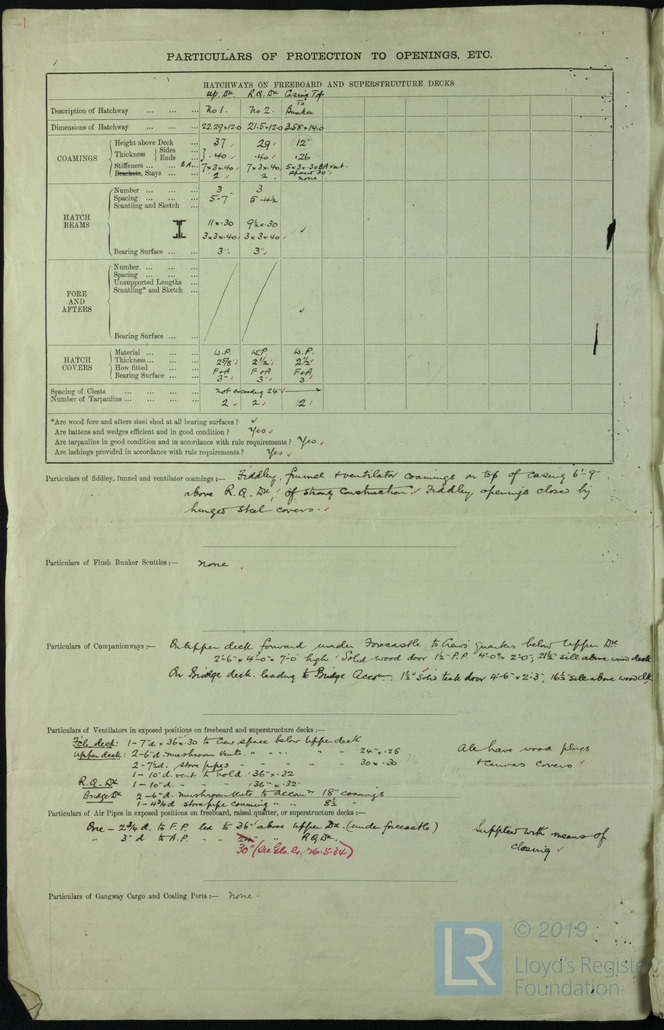 PARTICULARS OF PROTECTION TO OPENINGS, ETC.
HATCHWAYS ON FREEBOARD AND SUPERSTRUCTURE DECKS
Up. Dk. R.Q. Dk Casing Top
Description of Hatchway ... ... ... No 1. No 2. To Bunker
Dimensions of Hatchway ... ... ... 22.29×12.0 21.5×12.0 3.58×14.0
COAMINGS
Height above Deck ... 37 29 12"
Thickness { Sides ... Ends ... .40 .40 .26
Stiffeners ... ... B.A... 7×3×.40 7×3×.40 5×3×.30 BA vert. spaced 30"
Brackets, Stays ... ... 2 2 none
HATCH BEAMS
Number ... ... ... 3 3
Spacing ... ... ... 5-7 5-4½
Scantling and Sketch ...
11×.30 9½×.30 ✓
3×3×.40 3×3×.40
Bearing Surface ... ... 3" 3"
FORE AND AFTERS
Number ... ... ...
Spacing ... ... ...
Unsupported Lengths ...
Scantling* and Sketch ... ✓
Bearing Surface ... ...
HATCH COVERS
Material ... ... ... W.P. W.P W.P.
Thickness ... ... ... 2⅝ 2½ 2½
How fitted ... ... F+A F+A F+A
Bearing Surface ... ... 3" 3" 3
Spacing of Cleats ... ... ... ... not exceeding 24"
Number of Tarpaulins ... ... ... ... 2 2 2
*Are wood fore and afters steel shod at all bearing surfaces? ✓
Are battens and wedges efficient and in good condition? Yes
Are tarpaulins in good condition and in accordance with rule requirements? Yes
Are lashings provided in accordance with rule requirements? Yes
Particulars of fiddley, funnel and ventilator coamings:— Fiddley, funnel + ventilator coamings on top of casing 6'-9"
above R.Q. Dk, of strong construction. Fiddley openings closed by
hinged steel covers.
Particulars of Flush Bunker Scuttles:— none
Particulars of Companionways:— On Upper deck forward under Forecastle to Crew's quarters below Upper Dk
2'-6" × 4'-0" × 7'-0" high. Solid wood door 1½" P.P. 4'-0" × 2'-0", 21½" sill above wood deck
On Bridge deck leading to Bridge Accom. 1½" Solid teak door 4'-6" × 2'-3", 16½" sill above wood dk
Particulars of Ventilators in exposed positions on freeboard and superstructure decks:—
Fcle deck: 1-7"d × 36×.30 to Crew space below upper deck
Upper deck: 2-6"d mushroom vents " " " " " 24"×.25 All have wood plugs
2-7"d. store pipes " " " " " 30×.30 + canvas covers
1-10"d. vent to hold 36"×.32
R.Q. Dk 1-10"d. " " " 36"×.32
Bridge Dk 2-6"d. mushroom vents to accom 18" coamings
1-4¾d store pipe coaming " " 8½ "
Particulars of Air Pipes in exposed positions on freeboard, raised quarter, or superstructure decks:—
One - 2¾d. to F.P. led to 36" above Upper Dk. (under forecastle) Supplied with means of
" 3"d to A.P. " " " " R.Q. Dk. closing
30" (See Gls. Lr. 16.5.34)
Particulars of Gangway Cargo and Coaling Ports:— none.
LR © 2019
Lloyd's Register
Foundation